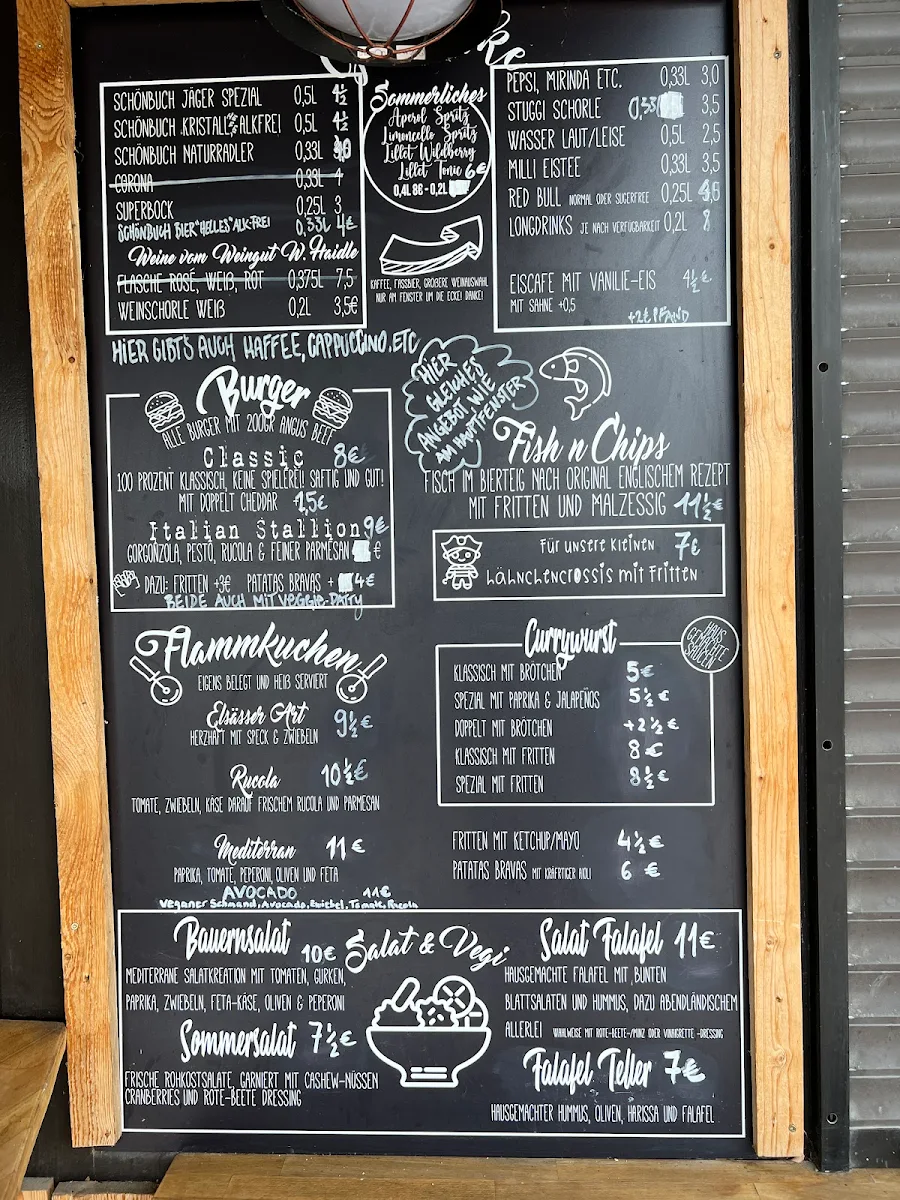 SCHÖNBUCH JÄGER SPEZIAL 0,5L 4½
SCHÖNBUCH KRISTALL ALKFREI 0,5L 4½
SCHÖNBUCH NATURRADLER 0,33L
CORONA 0,33L 4
SUPERBOCK 0,25L 3
SCHÖNBUCH BIER "HELLES" ALK-FREI 0,33L 4€
Weine vom Weingut W. Haidle
FLASCHE ROSÉ, WEIß, ROT 0,375L 7,5
WEINSCHORLE WEIß 0,2L 3,5€
Sommerliches
Aperol Spritz
Limoncello Spritz
Lillet Wildberry
Lillet Tonic 6€
0,4L 8€ - 0,2L
KAFFEE, FASSBIER, GRÖßERE WEINAUSWAHL
NUR AM FENSTER UM DIE ECKE! DANKE!
PEPSI, MIRINDA ETC. 0,33L 3,0
STUGGI SCHORLE 0,33 3,5
WASSER LAUT/LEISE 0,5L 2,5
MILLI EISTEE 0,33L 3,5
RED BULL NORMAL ODER SUGERFREE 0,25L
LONGDRINKS JE NACH VERFÜGBARKEIT 0,2L 8
EISCAFE MIT VANILIE-EIS 4½€
MIT SAHNE +0,5
+2€ PFAND
HIER GIBT'S AUCH KAFFEE, CAPPUCCINO.ETC
HIER
GLEICHES
ANGEBOT WIE
AM HAUPTFENSTER
Burger
ALLE BURGER MIT 200GR ANGUS BEEF
Classic 8€
100 PROZENT KLASSISCH, KEINE SPIELEREI! SAFTIG UND GUT!
MIT DOPPELT CHEDDAR 1,5€
Italian Stallion 9€
GORGONZOLA, PESTO, RUCOLA & FEINER PARMESAN €
DAZU: FRITTEN +3€ PATATAS BRAVAS + 4€
BEIDE AUCH MIT VEGGIE-PATTY
Fish n Chips
FISCH IM BIERTEIG NACH ORIGINAL ENGLISCHEM REZEPT
MIT FRITTEN UND MALZESSIG 11½€
Für unsere kleinen 7€
Hähnchencrossis mit Fritten
Flammkuchen
EIGENS BELEGT UND HEIß SERVIERT
Elsässer Art 9½€
HERZHAFT MIT SPECK & ZWIEBELN
Rucola 10½€
TOMATE, ZWIEBELN, KÄSE DARAUF FRISCHEM RUCOLA UND PARMESAN
Mediterran 11€
PAPRIKA, TOMATE, PEPERONI, OLIVEN UND FETA
AVOCADO 11€
Veganer Schmand, Avocado, Zwiebel, Tomate, Rucola
Currywurst
HAUS
GEMACHTE
SAUCEN
KLASSISCH MIT BRÖTCHEN 5€
SPEZIAL MIT PAPRIKA & JALAPEÑOS 5½€
DOPPELT MIT BRÖTCHEN +2½€
KLASSISCH MIT FRITTEN 8€
SPEZIAL MIT FRITTEN 8½€
FRITTEN MIT KETCHUP/MAYO 4½€
PATATAS BRAVAS MIT KRÄFTIGER AIOLI 6€
Salat & Vegi
Bauernsalat 10€
MEDITERRANE SALATKREATION MIT TOMATEN, GURKEN,
PAPRIKA, ZWIEBELN, FETA-KÄSE, OLIVEN & PEPERONI
Sommersalat 7½€
FRISCHE ROHKOSTSALATE, GARNIERT MIT CASHEW-NÜSSEN
CRANBERRIES UND ROTE-BEETE DRESSING
Salat Falafel 11€
HAUSGEMACHTE FALAFEL MIT BUNTEN
BLATTSALATEN UND HUMMUS, DAZU ABENDLÄNDISCHEM
ALLERLEI WAHLWEISE MIT ROTE-BEETE-/MINZ ODER VINAIGRETTE -DRESSING
Falafel Teller 7€
HAUSGEMACHTER HUMMUS, OLIVEN, HARISSA UND FALAFEL